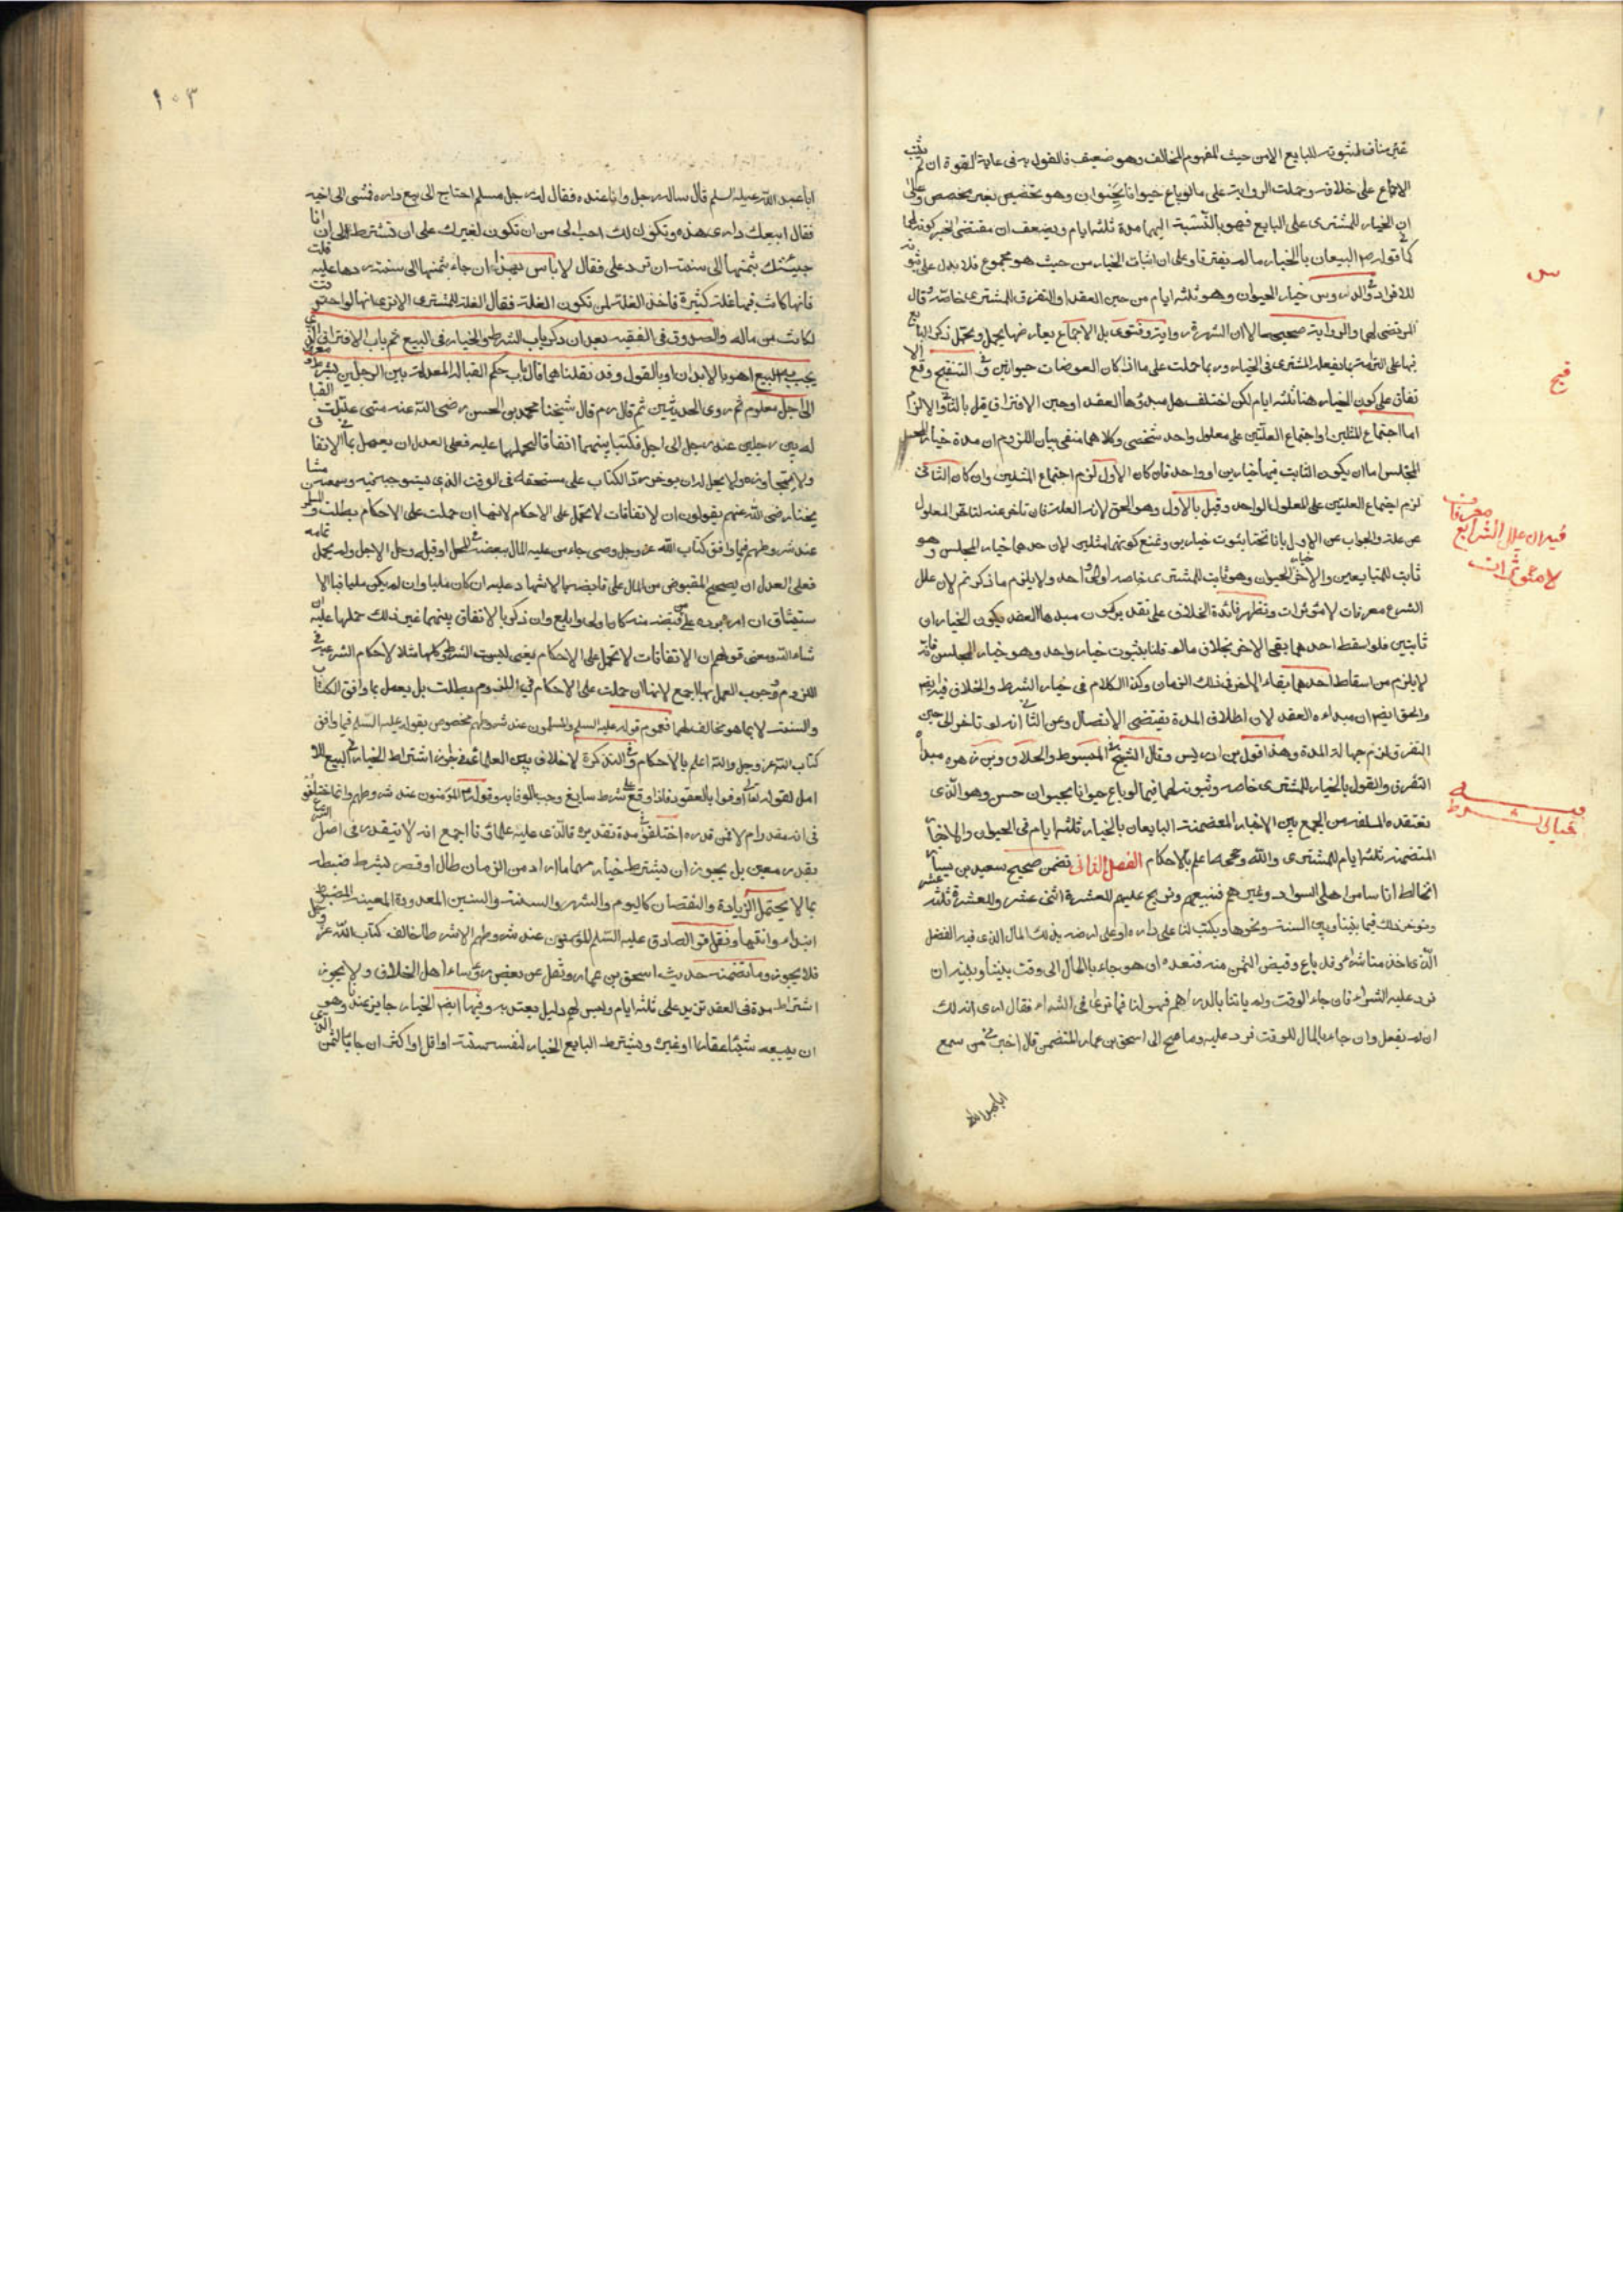 غير مناف لثبوته للبايع الا من حيث المفهوم المخالف وهو ضعيف فالقول به فى غاية القوة ان لم يثبت
الاجماع على خلافه وحملت الرواية على ما لو باع حيوانا بحيوان وهو تخصيص بغير مخصص وعلى
ان الخيار للمشترى على البايع فهو بالنسبة اليهما مدة ثلثة ايام ويضعف ان مقتضى الخبر كونه لهما
كما فى قوله ص البيعان بالخيار ما لم يفترقا وعلى ان اثبات الخيار من حيث هو مجموع فلا يدل على ثبوته
للافراد وفى الدروس خيار الحيوان وهو ثلثة ايام من حين العقد او التفرق للمشترى خاصة وقال
المرتضى لهما والرواية صحيحة الا ان الشهرة رواية وفتوى بل الاجماع يعارضها
المشترى فى الخيار وربما حملت على ما اذا كان العوضان حيوانين وفى التنقيح وقع الا
تفاق على كون الخيار هنا ثلثة ايام لكن اختلف هل مبدؤها العقد او حين الافتراق قيل بالثانى والا لزم
اما اجتماع المثلين او اجتماع العلتين على معلول واحد شخصى وكلاهما منفى بيان اللزوم ان مدة خيار
المجلس اما ان يكون الثابت فيها خيارين او واحد فان كان الاول لزم اجتماع المثلين وان كان الثانى
لزم اجتماع العلتين على المعلول الواحد وقيل بالاول وهو الحق لانه العلة فان تاخر عنه لتاخر المعلول
عن علته والجواب عن الاول بانا نختار ثبوت خيارين ونمنع كونهما مثلين لان احدهما خيار المجلس وهو
ثابت للمتبايعين والاخر خيار الحيوان وهو ثابت للمشترى خاصة او واحد ولا يلزم ما ذكرتم لان علل
الشرع معرفات لا مؤثرات وتظهر فائدة الخلاف على تقدير كون مبدءها العقد يكون الخياران
ثابتين فلو اسقط احدهما بقى الاخر بخلاف ما لو قلنا بثبوت خيار واحد وهو خيار المجلس فانه
لا يلزم من اسقاط احدهما بقاء الاخر فى ذلك الزمان وكذا الكلام فى خيار الشرط والخلاف فيه ايضا
والحق ايضا ان مبداءه العقد لان اطلاق المدة يقتضى الاتصال وعن الثانى انه لو تاخر الى حين
التفرق لزم جهالة المدة وهذا قول بن ادريس وقال الشيخ فى المبسوط والخلاف وبن زهره مبدأه
التفرق والقول بالخيار للمشترى خاصه وثبوته لهما فيما لو باع حيوانا بحيوان حسن وهو الذى
نعتقده المستفاد من الجمع بين الاخبار المتضمنة البايعان بالخيار ثلثة ايام فى الحيوان والاخبار
المتضمنة ثلثة ايام للمشترى والله وحججه اعلم بالاحكام الفصل الثانى تضمن صحيح سعيد بن يسار
انا نخالط اناسا من اهل السواد وغيرهم فنبيعهم ونربح عليهم للعشرة اثنى عشر وللعشرة ثلثة عشر
ونوخر ذلك فيما بيننا وبين السنة ونحوها ويكتب لنا على داره او على ارضه بذلك المال الذى فيه الفضل
الذى اخذ منا شراء قد باع وقبض الثمن منه فنعده ان هو جاء بالمال الى وقت بيننا وبينه ان
نرد عليه الشراء فان جاء الوقت ولم ياتنا بالدراهم فهو لنا فما ترى فى الشراء فقال ارى انه لك
ان لم يفعل وان جاء بالمال للوقت فرد عليه وما صح الى اسحق بن عمار المتضمن قال اخبرنى من سمع
ابا عبد الله
س
قيح
فيه ان علل الشرايع معرفات
لا مؤثرات
فيه
خيار الشرط
١٠٣
ابا عبد الله عليه السلم قال ساله رجل وانا عنده فقال له رجل مسلم احتاج الى بيع داره فمشى الى اخيه
فقال ابيعك دارى هذه وتكون لك احب الى من ان تكون لغيرك على ان تشترط لى انى اذا
جيئتك بثمنها الى سنة ان ترد على فقال لا باس بهذا ان جاء بثمنها الى سنة ردها عليه قلت
فانها كانت فيها غلة كثيرة فاخذ الغلة لمن تكون الغلة فقال الغلة للمشترى الا ترى انها لو احترقت
لكانت من ماله والصدوق فى الفقيه بعد ان ذكر باب الشرط والخيار فى البيع ثم باب الافتراق الذى
يجب به البيع اهو بالابدان او بالقول وقد نقلناهما قال باب حكم القبالة المعدلة بين الرجلين بشرط معروف
الى اجل معلوم ثم روى الحديثين ثم قال رم قال شيخنا محمد بن الحسن رضى الله عنه متى عدلت القبا
له بين رجلين عند رجل الى اجل فكتبا بينهما اتفاقا ليحملهما عليه فعلى العدل ان يعمل بما فى الاتفاق
ولا يتجاوزه ولا يحل له ان يوخر رد الكتاب على مستحقه فى الوقت الذى يستوجبه فيه وسمعته من مشا
يخنا رضى الله عنهم يقولون ان الاتفاقات لا تحمل على الاحكام لانها ان حملت على الاحكام بطلت والمسلمون
عند شروطهم فيما وافق كتاب الله عز وجل ومتى جاء من عليه المال ببعضه فى المحل او قبله وحل الاجل ولم يحمل تمامه
فعلى العدل ان يصحح المقبوض من المال على قابضه بالاشهاد عليه ان كان مليا وان لم يكن مليا فبالا
ستيثاق ان امر برده على من قبضه منه كان اولى وابلغ وان ذكر بالاتفاق بينهما غير ذلك حملهما عليه ان
شاء الله ومعنى قولهم ان الاتفاقات لا تحمل على الاحكام يعنى ليست الشروط كلها مثل الاحكام الشرعية فى
اللزوم ووجوب العمل بها اجمع لانها ان حملت على الاحكام فى اللزوم بطلت بل يعمل بما وافق الكتاب
والسنة لا بما هو مخالف لهما فعموم قوله عليه السلم والمسلمون عند شروطهم مخصوص بقوله عليه السلم فيما وافق
كتاب الله عز وجل والله اعلم بالاحكام وفى التذكرة لا خلاف بين العلماء فى جواز اشتراط الخيار فى البيع
لقوله تعالى اوفوا بالعقود فاذا وقع على شرط سايغ وجب الوفا به وقوله ع المؤمنون عند شروطهم وانما اختلفوا
فى انه مقدر ام لا فمن قدره اختلفوا فى مدة تقديره فالذى عليه علماؤنا اجمع انه لا يتقدر فى اصل الشرع
بقدر معين بل يجوز ان يشترط خيار مهما اراد من الزمان طال او قصر بشرط ضبطه
بما لا يحتمل الزيادة والنقصان كاليوم والشهر والسنة والسنين المعدودة المعينة المضبوط
ابتداء وانتهاء ولقول الصادق عليه السلم المؤمنون عند شروطهم الا شرطا خالف كتاب الله عز وجل
فلا يجوز وما تضمنه حديث اسحق بن عمار ونقل عن بعض رؤساء اهل الخلاف ولا يجوز
اشتراط مدة فى العقد تزيد على ثلثة ايام وليس لهم دليل يعتد به وفيها ايضا الخيار جايز عندنا وهو
ان يبيعه شيئا عقارا او غيره ويشترط البايع الخيار لنفسه سنة او اقل او اكثر ان جاء بالثمن